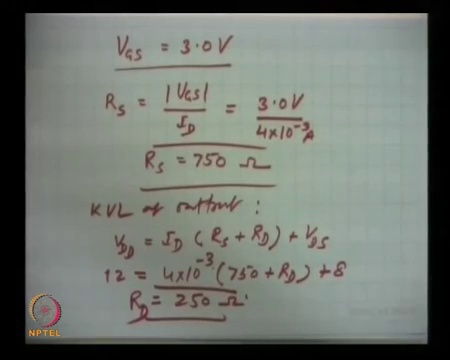 V_GS = 3.0 V
R_S = |V_GS| / I_D = 3.0 V / 4×10^-3 A
R_S = 750 Ω
KVL at output :
V_DD = I_D (R_S + R_D) + V_DS
12 = 4×10^-3 (750 + R_D) + 8
R_D = 250 Ω
NPTEL